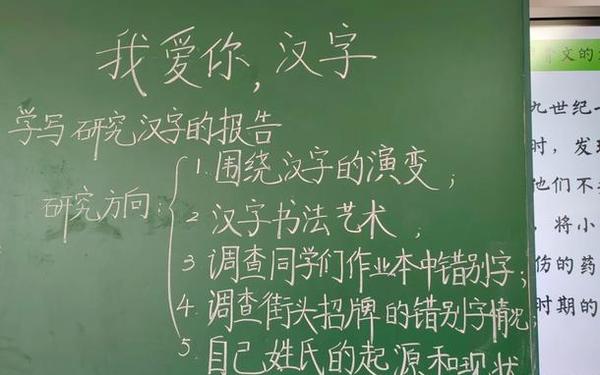 我爱你,汉字
学写研究汉字的报告
研究方向:
1.围绕汉字的演变;
2 汉字书法艺术;
3 调查同学们作业本中错别字;
4.调查街头招牌的错别字情况;
5.自己姓氏的起源和现状
骨文的
九世纪
时,发现
他们不
,将小
伤的药
时期的